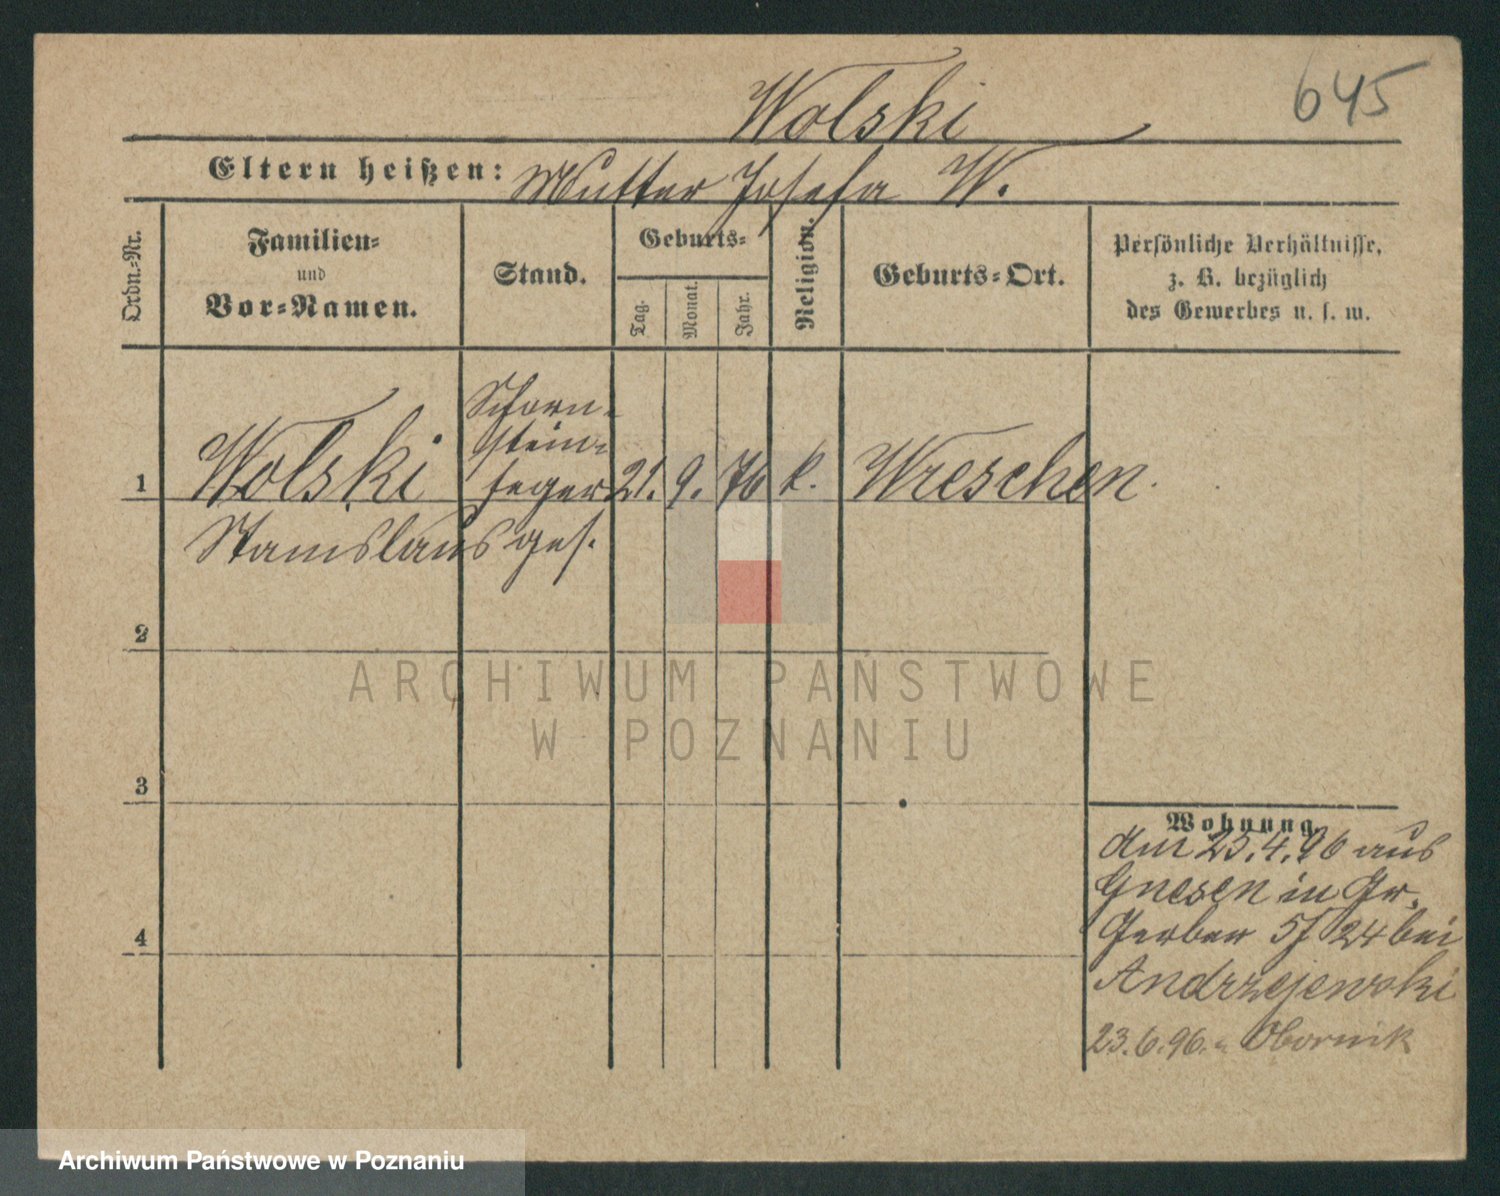 645
Wolski
Eltern heißen: Mutter Josefa W.
Ordn.-Nr.
Familien-
und
Vor-Namen.
Stand.
Geburts-
Tag.
Monat.
Jahr.
Religion.
Geburts-Ort.
Persönliche Verhältnisse,
z. B. bezüglich
des Gewerbes u. s. w.
Schorn-
stein-
1 Wolski feger 21. 9. 76 k. Wreschen.
Stanislaus ges.
2
ARCHIWUM PAŃSTWOWE
W POZNANIU
3
Wohnung
am 23.4.96 aus
Gnesen in Gr.
4
Gerber 24 bei
Andrzejewski
23.6.96. Obornik
Archiwum Państwowe w Poznaniu